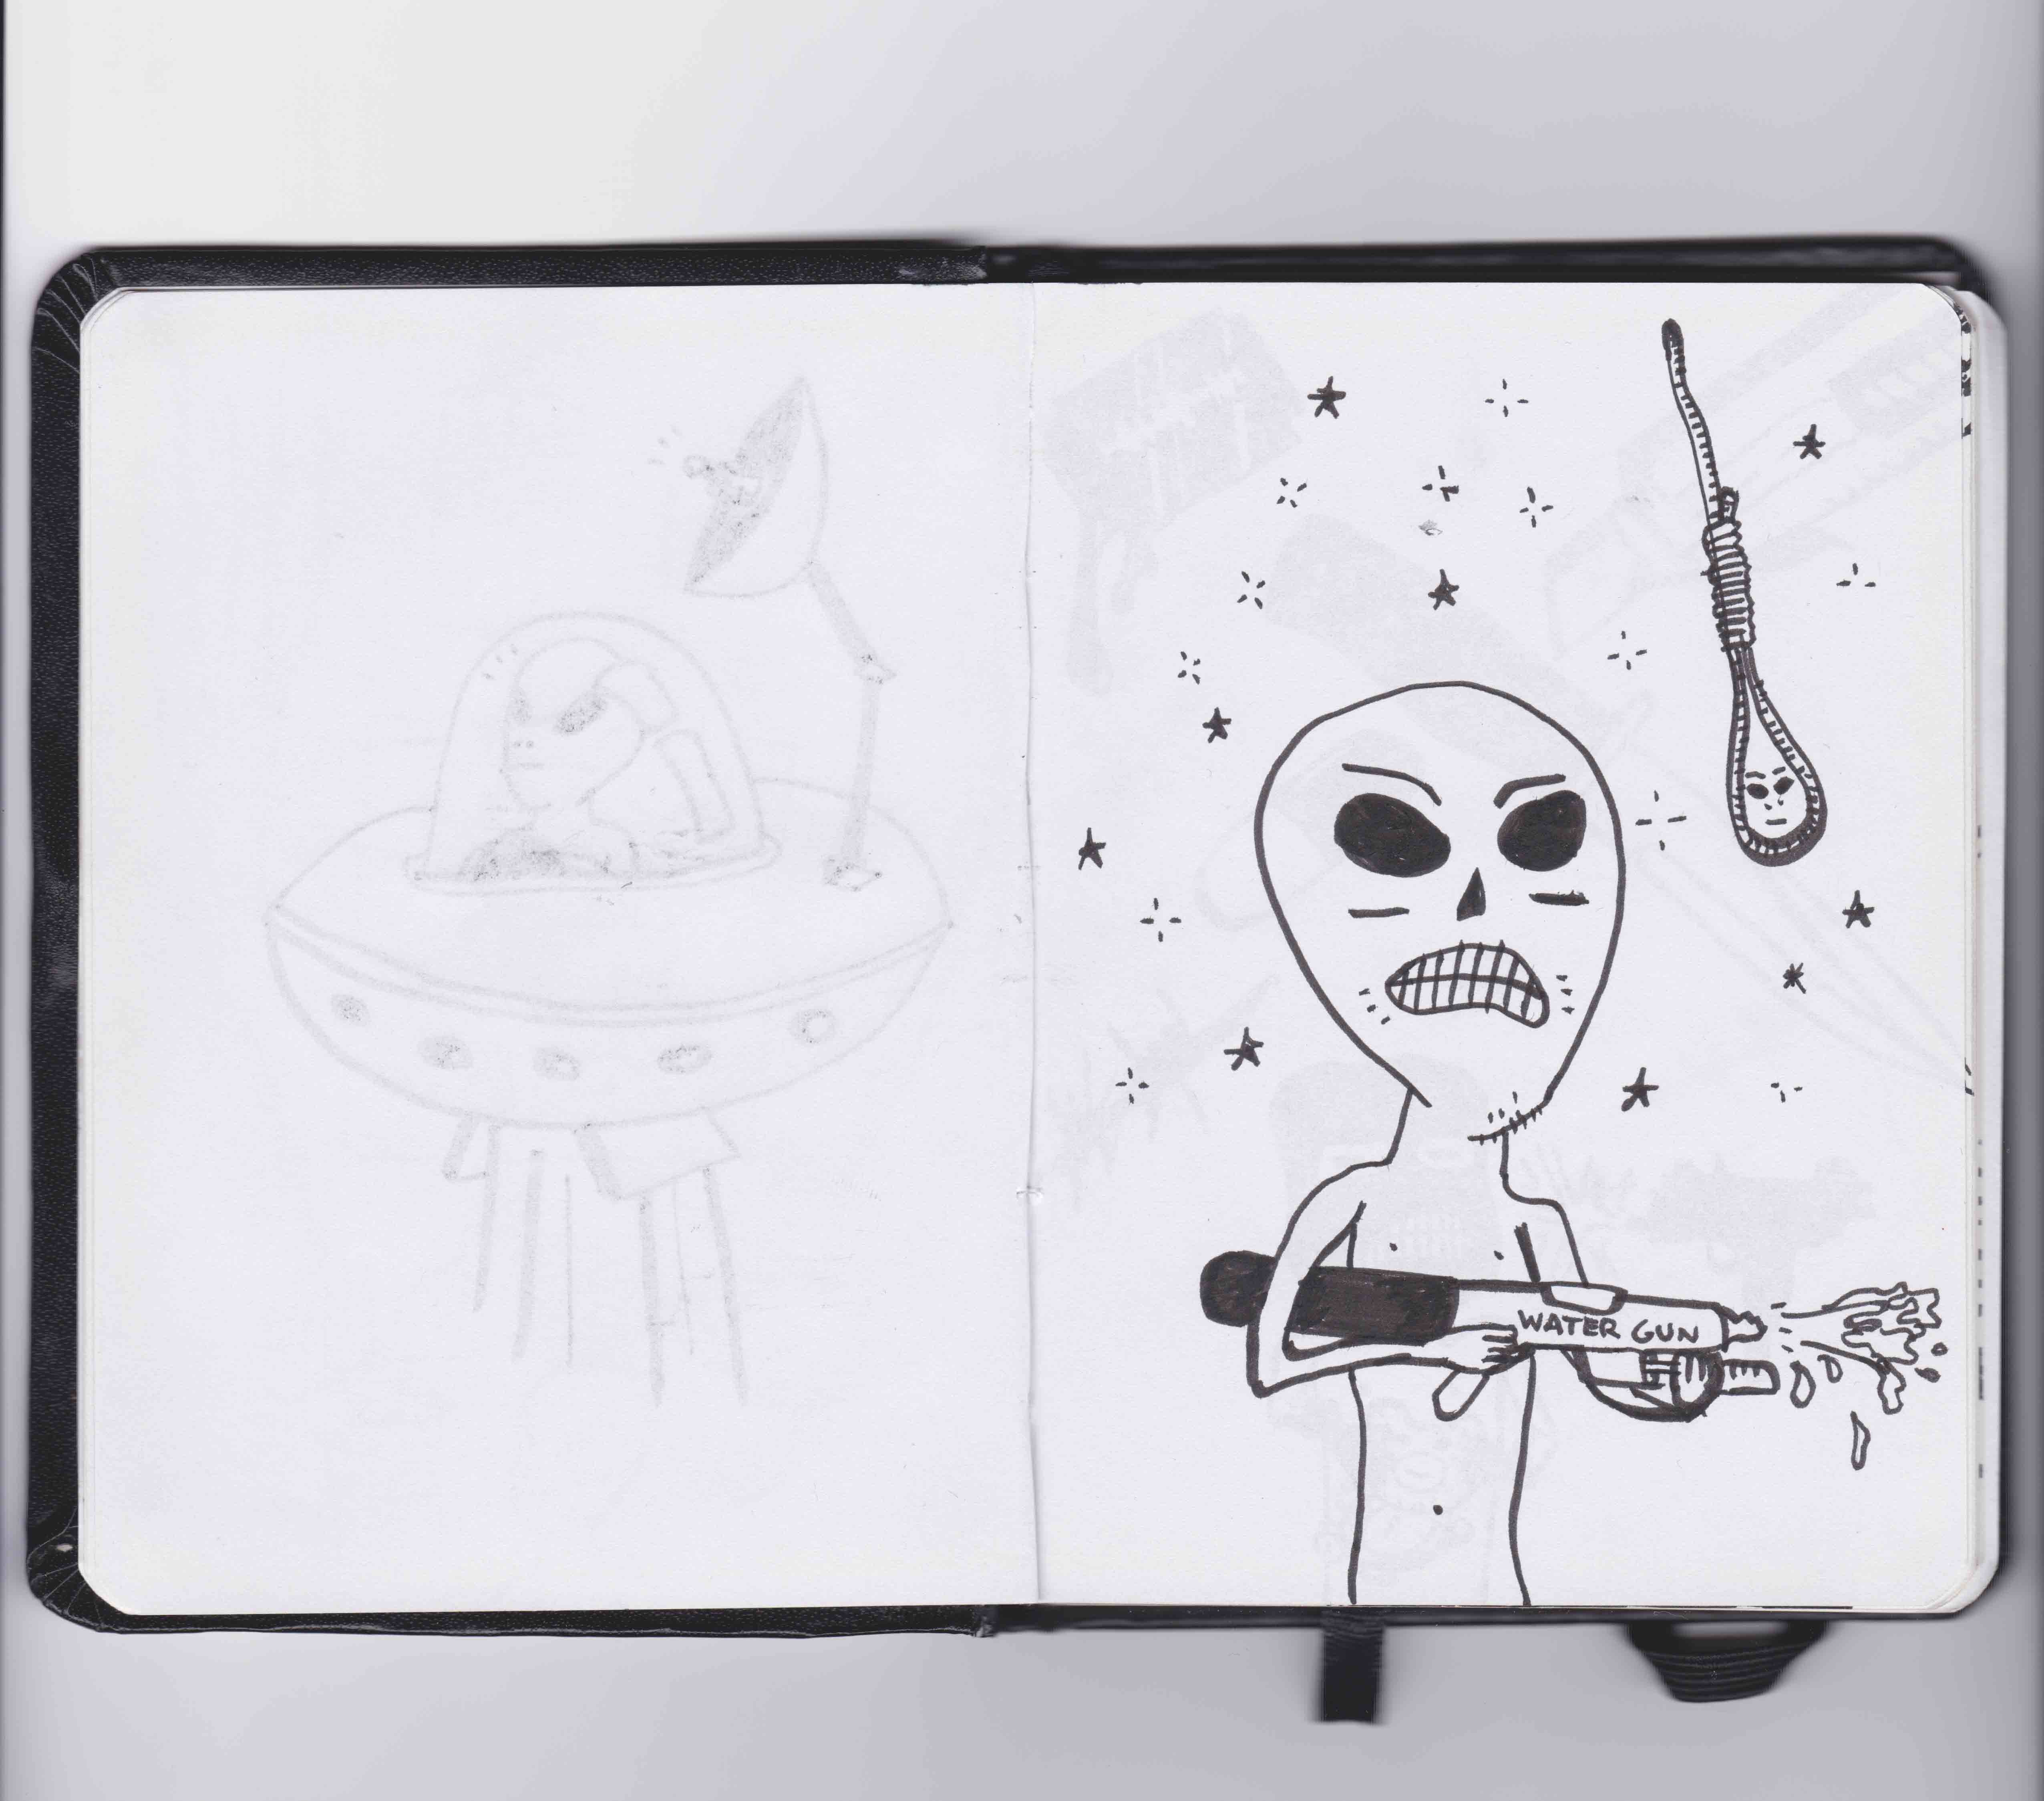 WATER GUN